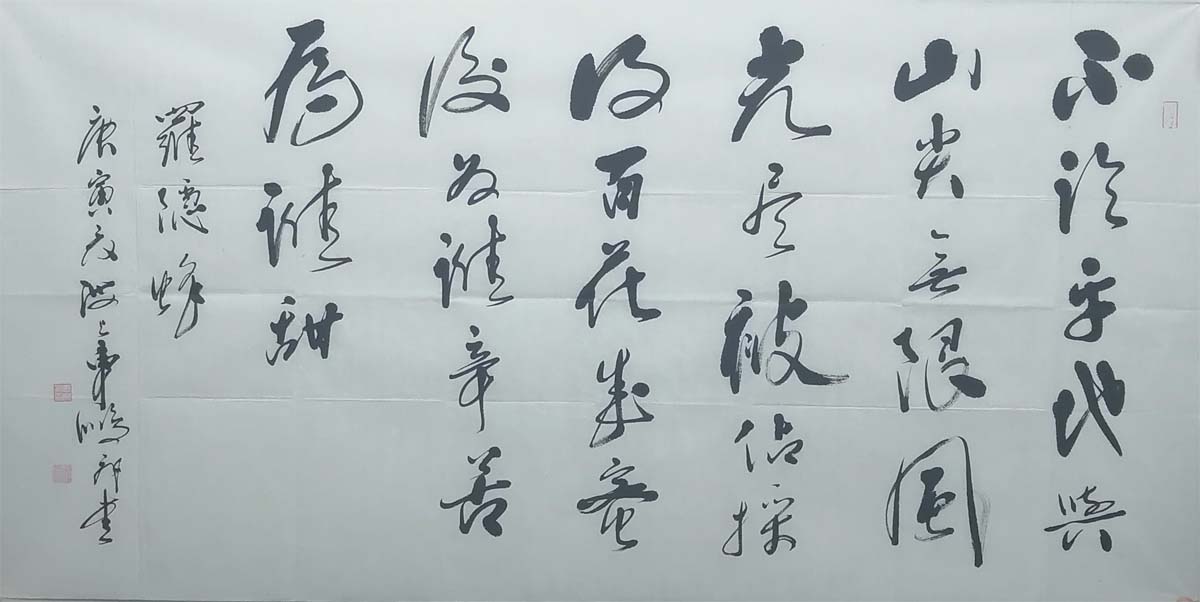 不論平地與
山尖無限風
光尽被佔採
得百花成蜜
後為誰辛苦
為誰甜
羅隱蜂
庚寅夏海上車鵬飛書